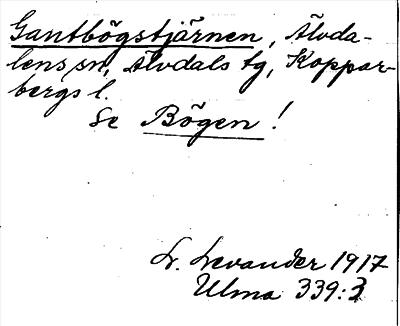 Gantbögstjärnen, Älvda-
lens sn, Älvdals tg, Koppar-
bergs l.
Se Bögen!
L. Levander 1917
Ulma 339:3